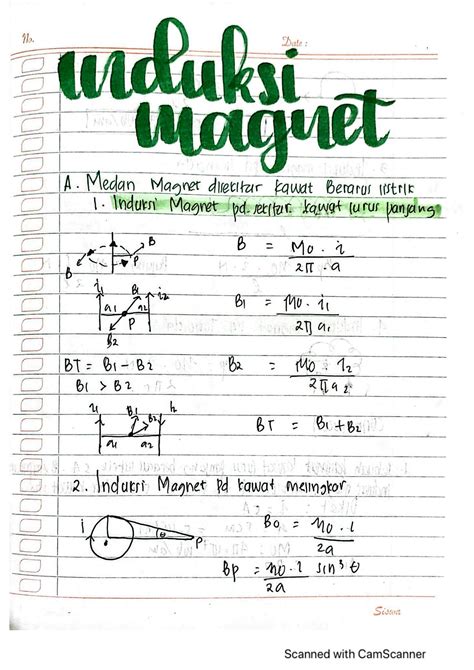 No.
Date :
induksi
magnet
A. Medan Magnet disekitar kawat Berarus listrik
1. Induksi Magnet pd. sekitar kawat lurus panjang
B
P
B
B = Mo . i
2π . a
i1 B1 i2
a1 a2
P
B2
B1 = Mo . i1
2π a1
BT = B1 - B2
B1 > B2
B2 = Mo . i2
2π a2
i1 B1 B2 i2
a1 a2
BT = B1 + B2
2. Induksi Magnet pd kawat melingkar
i
θ
P
Bo = Mo . i
2a
Bp = Mo . i sin³ θ
2a
Siswa
Scanned with CamScanner